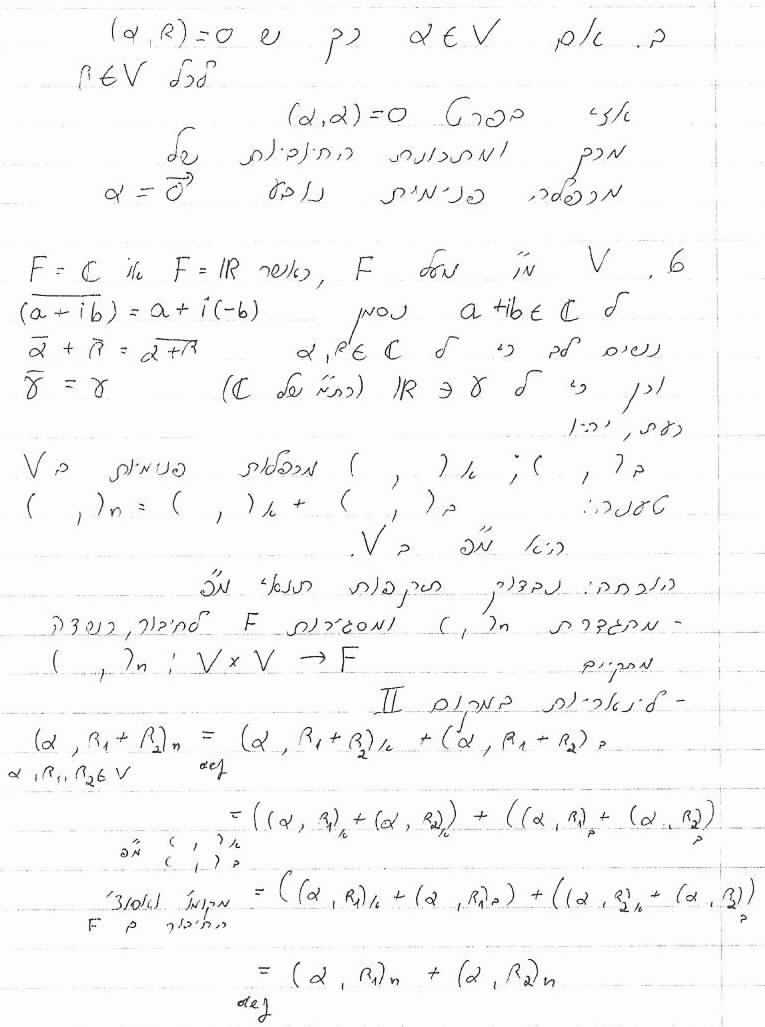 ב. אם α∈V כך ש (α,β)=0
לכל β∈V
אזי בפרט (α,α)=0
מכך ומתכונת החיוביות של
מכפלה פנימית נובע α=0⃗
6. V מ"ו מעל F, כאשר F=ℝ או F=ℂ
ל a+ib∈ℂ נסמן (a+ib)̅ = a+i(-b)
נשים לב כי ל α,β∈ℂ ᾱ+β̄=α+β̅
וכן כי ל ℝ∋γ (כת"מ של ℂ) γ̄=γ
כעת, יהיו
( , )א ; ( , )ב מכפלות פנימיות ב V
טענה: ( , )n = ( , )א + ( , )ב
היא מ"פ ב V.
הוכחה: נבדוק תקפות תנאי מ"פ
- מהגדרת ( , )n ומסגירות F לחיבור, כשדה
מתקיים ( , )n : V×V→F
- לינאריות במקום II
(α,β₁+β₂)n = (α,β₁+β₂)א + (α,β₁+β₂)ב
α,β₁,β₂∈V def
= ((α,β₁)א+(α,β₂)א) + ((α,β₁)ב+(α,β₂)ב)
( , )א מ"פ
( , )ב
= ((α,β₁)א+(α,β₁)ב) + ((α,β₂)א+(α,β₂)ב)
החיבור ב F
= (α,β₁)n + (α,β₂)n
def